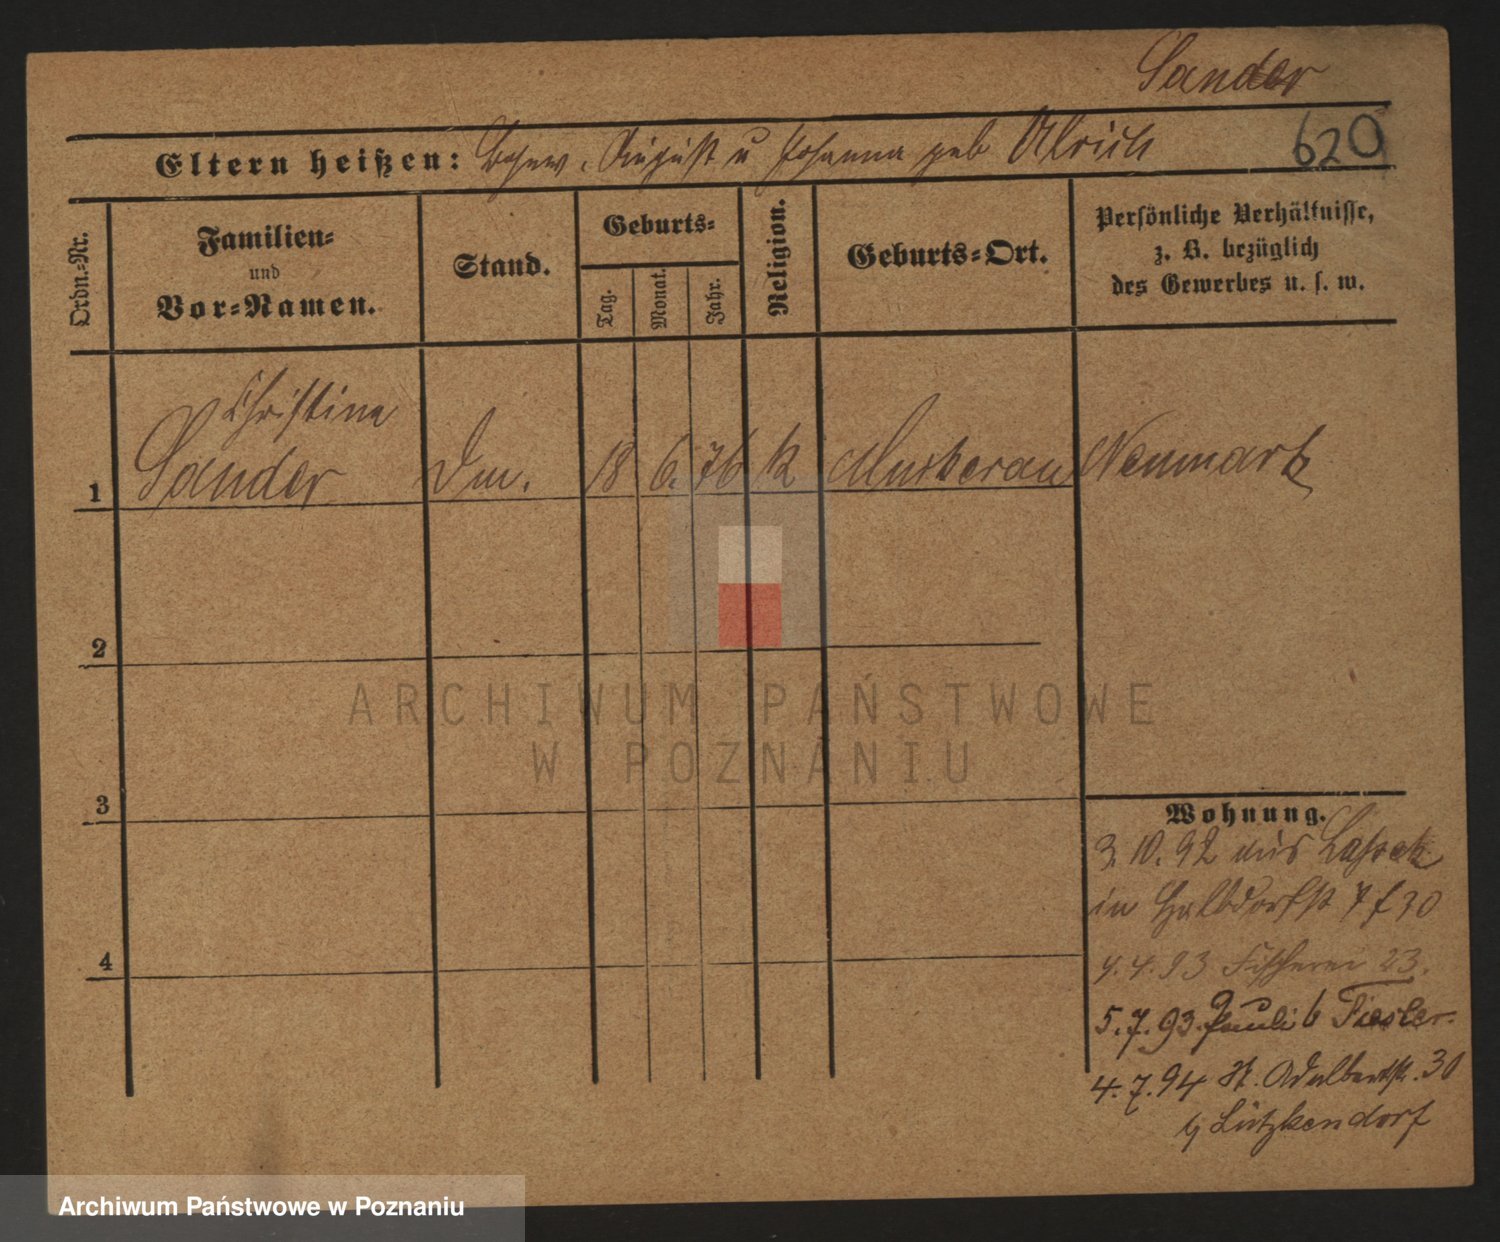 Sander
620
Eltern heißen: August u Johanna geb Ulrich
Ordn.=Nr.
Familien=
und
Vor=Namen.
Stand.
Geburts=
Tag.
Monat.
Jahr.
Religion.
Geburts=Ort.
Persönliche Verhältnisse,
z. B. bezüglich
des Gewerbes u. s. w.
Christine
1 Sander Dm. 18 6. 76 k Neumark
2
3
4
Wohnung.
3.10.92 aus
in Halbdorfst 30
4.4.93 Fischerei 23.
5.7.93. Pauli 6 Fiesler.
4.7.94 St. Adalbertstr. 30
b/ Lützkendorf
ARCHIWUM PAŃSTWOWE
W POZNANIU
Archiwum Państwowe w Poznaniu